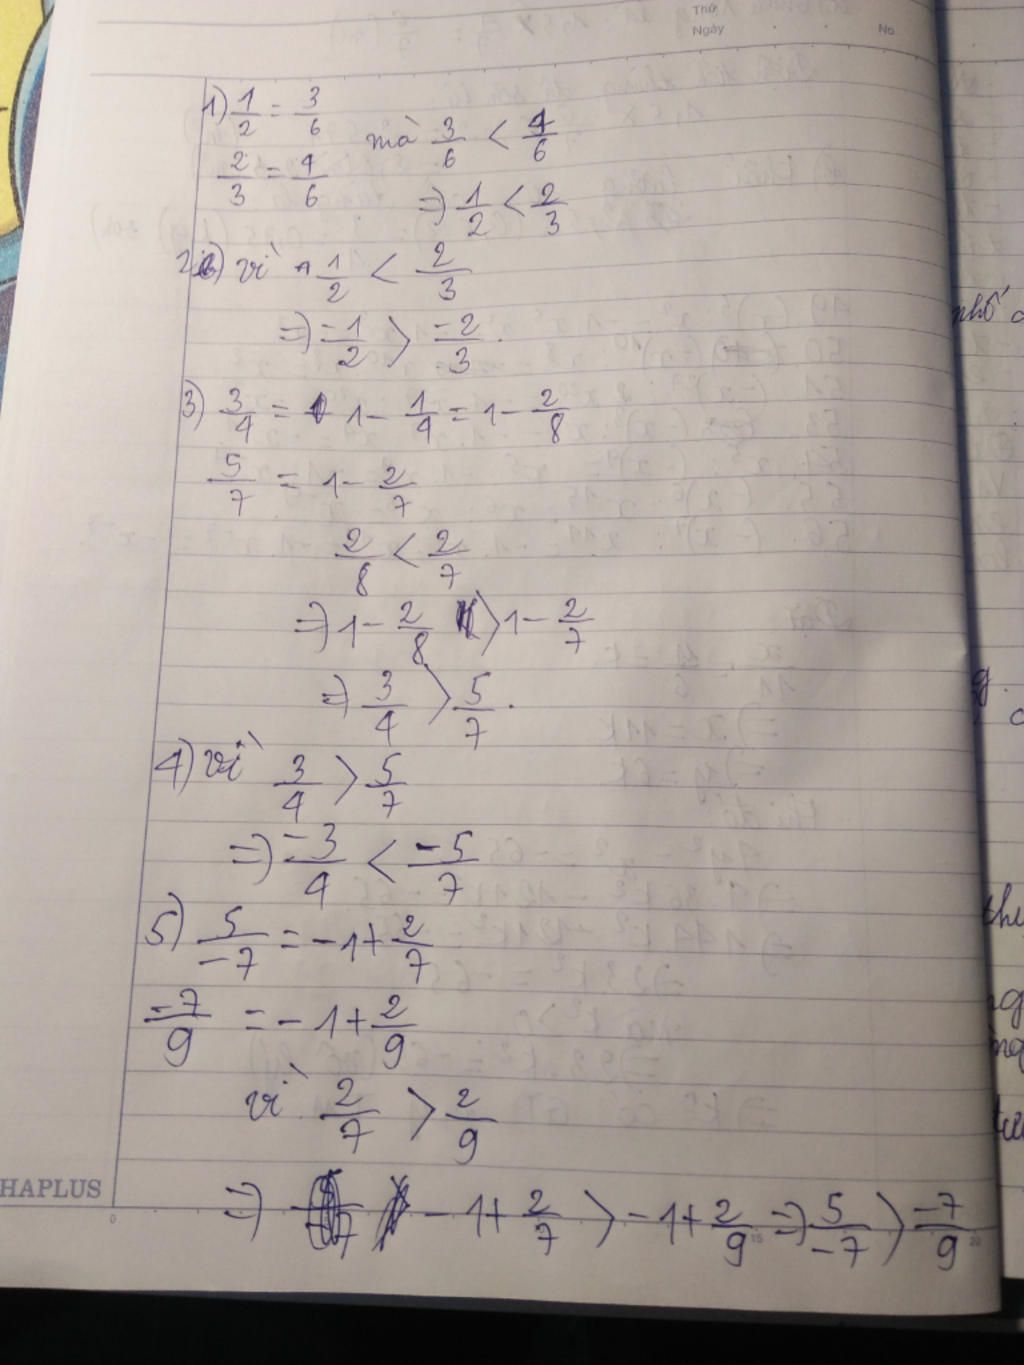 Thứ
Ngày No
1) 1/2 = 3/6
mà 3/6 < 4/6
2/3 = 4/6
=> 1/2 < 2/3
2) vì 1/2 < 2/3
=> -1/2 > -2/3.
3) 3/4 = 1 - 1/4 = 1 - 2/8
5/7 = 1 - 2/7
2/8 < 2/7
=> 1 - 2/8 > 1 - 2/7
=> 3/4 > 5/7.
4) vì 3/4 > 5/7
=> -3/4 < -5/7
5) 5/-7 = -1 + 2/7
-7/9 = -1 + 2/9
vì 2/7 > 2/9
=> -1 + 2/7 > -1 + 2/9 => 5/-7 > -7/9
HAPLUS
0 15 20